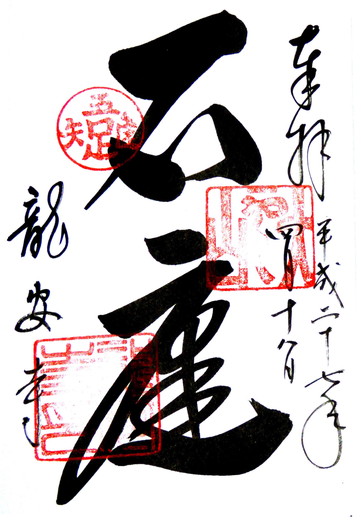 奉拝
平成二十七年
四月十八日
石庭
吾唯足知
龍安寺